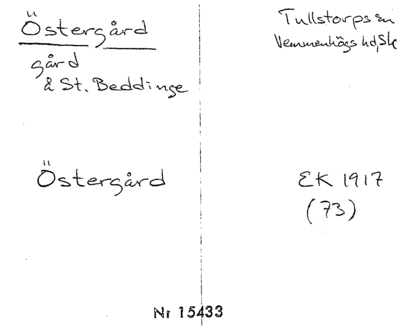 Östergård
gård
å St. Beddinge
Tullstorps sn
Vemmenhögs hd, Sk
Östergård
EK 1917
(73)
Nr 15433